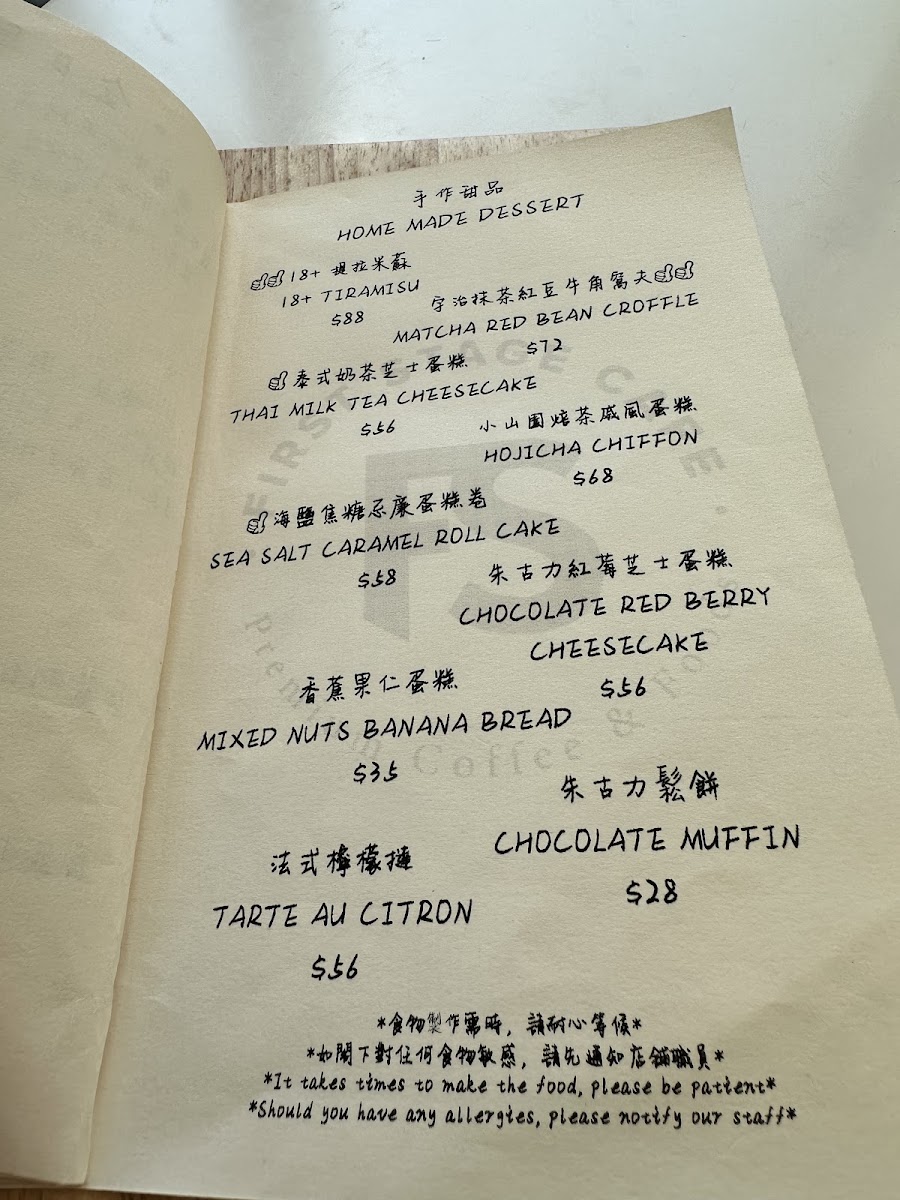 手作甜品
HOME MADE DESSERT
18+ 提拉米蘇
18+ TIRAMISU
$88
宇治抹茶紅豆牛角窩夫
MATCHA RED BEAN CROFFLE
$72
泰式奶茶芝士蛋糕
THAI MILK TEA CHEESECAKE
$56
小山園焙茶戚風蛋糕
HOJICHA CHIFFON
$68
海鹽焦糖忌廉蛋糕卷
SEA SALT CARAMEL ROLL CAKE
$58
朱古力紅莓芝士蛋糕
CHOCOLATE RED BERRY
CHEESECAKE
$56
香蕉果仁蛋糕
MIXED NUTS BANANA BREAD
$35
朱古力鬆餅
CHOCOLATE MUFFIN
$28
法式檸檬撻
TARTE AU CITRON
$56
*食物製作需時，請耐心等候*
*如閣下對任何食物敏感，請先通知店舖職員*
*It takes times to make the food, please be patient*
*Should you have any allergies, please notify our staff*
FIRST STAGE CAFE
FS
Premium Coffee &